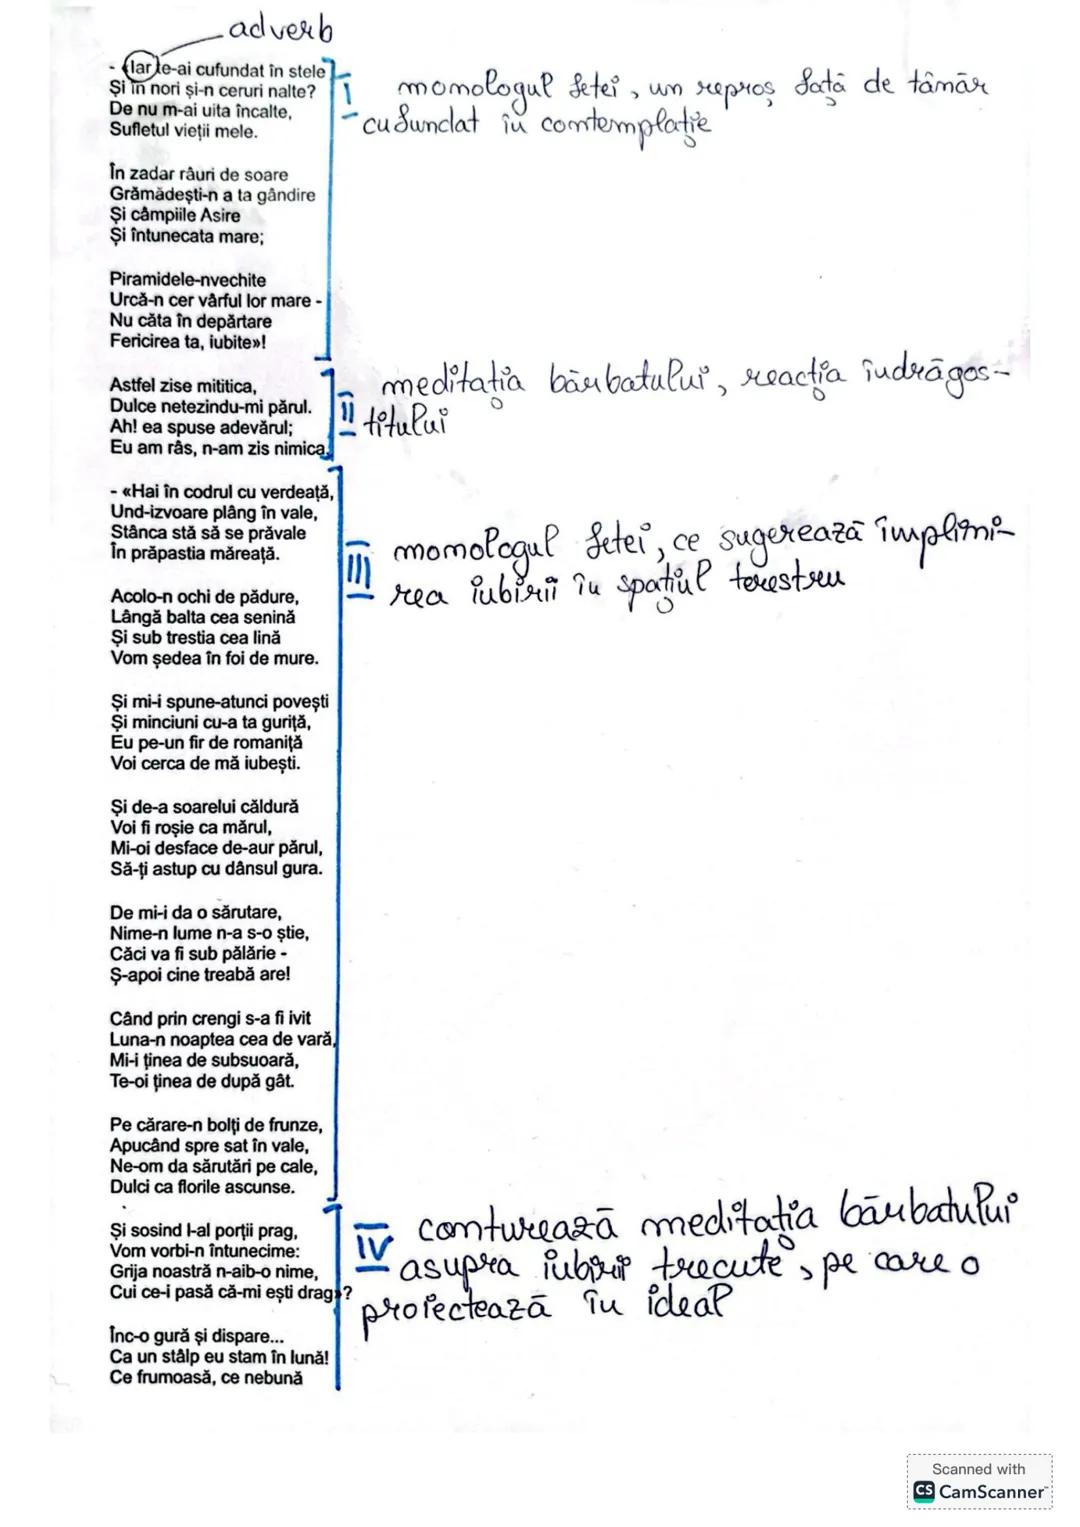 adverb
- «Iar te-ai cufundat în stele
Și în nori și-n ceruri nalte?
De nu m-ai uita încalte,
Sufletul vieții mele.
I
monologul fetei, un reproș față de tânăr
cufundat în contemplație
În zadar râuri de soare
Grămădești-n a ta gândire
Și câmpiile Asire
Și întunecata mare;
Piramidele-nvechite
Urcă-n cer vârful lor mare -
Nu căta în depărtare
Fericirea ta, iubite»!
Astfel zise mititica,
Dulce netezindu-mi părul.
Ah! ea spuse adevărul;
Eu am râs, n-am zis nimica.
II
meditația bărbatului, reacția îndrăgos-
titului
- «Hai în codrul cu verdeață,
Und-izvoare plâng în vale,
Stânca stă să se prăvale
În prăpastia măreață.
III
monologul fetei, ce sugerează împlini-
rea iubirii în spațiul terestru
Acolo-n ochi de pădure,
Lângă balta cea senină
Și sub trestia cea lină
Vom ședea în foi de mure.
Și mi-i spune-atunci povești
Și minciuni cu-a ta guriță,
Eu pe-un fir de romaniță
Voi cerca de mă iubești.
Și de-a soarelui căldură
Voi fi roșie ca mărul,
Mi-oi desface de-aur părul,
Să-ți astup cu dânsul gura.
De mi-i da o sărutare,
Nime-n lume n-a s-o știe,
Căci va fi sub pălărie -
Ș-apoi cine treabă are!
Când prin crengi s-a fi ivit
Luna-n noaptea cea de vară,
Mi-i ținea de subsuoară,
Te-oi ținea de după gât.
Pe cărare-n bolți de frunze,
Apucând spre sat în vale,
Ne-om da sărutări pe cale,
Dulci ca florile ascunse.
Și sosind l-al porții prag,
Vom vorbi-n întunecime:
Grija noastră n-aib-o nime,
Cui ce-i pasă că-mi ești drag»?
IV
conturează meditația bărbatului
asupra iubirii trecute, pe care o
proiectează în ideal
Înc-o gură și dispare...
Ca un stâlp eu stam în lună!
Ce frumoasă, ce nebună
Scanned with
CS CamScanner